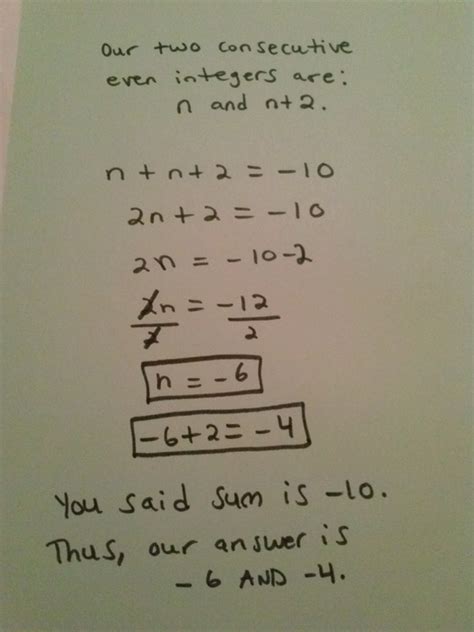 Our two consecutive
even integers are:
n and n+2.
n + n + 2 = -10
2n + 2 = -10
2n = -10-2
2n/2 = -12/2
n = -6
-6+2 = -4
You said sum is -10.
Thus, our answer is
-6 AND -4.